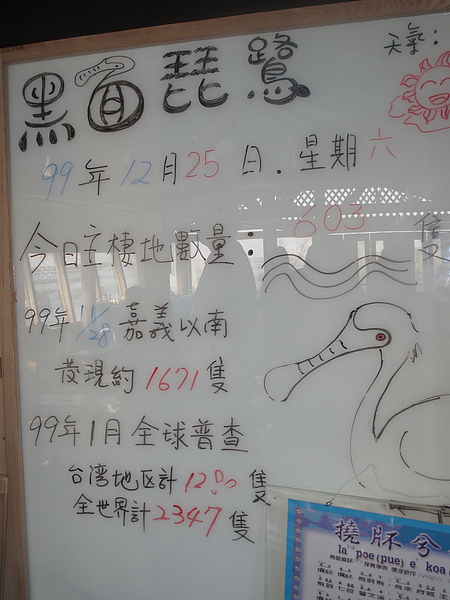 黑面琵鷺
天氣:
99年12月25日.星期六
今日主棲地數量:
603
隻
99年11/28嘉義以南
發現約1671隻
99年1月全球普查
台湾地区計1280隻
全世界計2347隻
撓胚兮
poe(pue) e koa